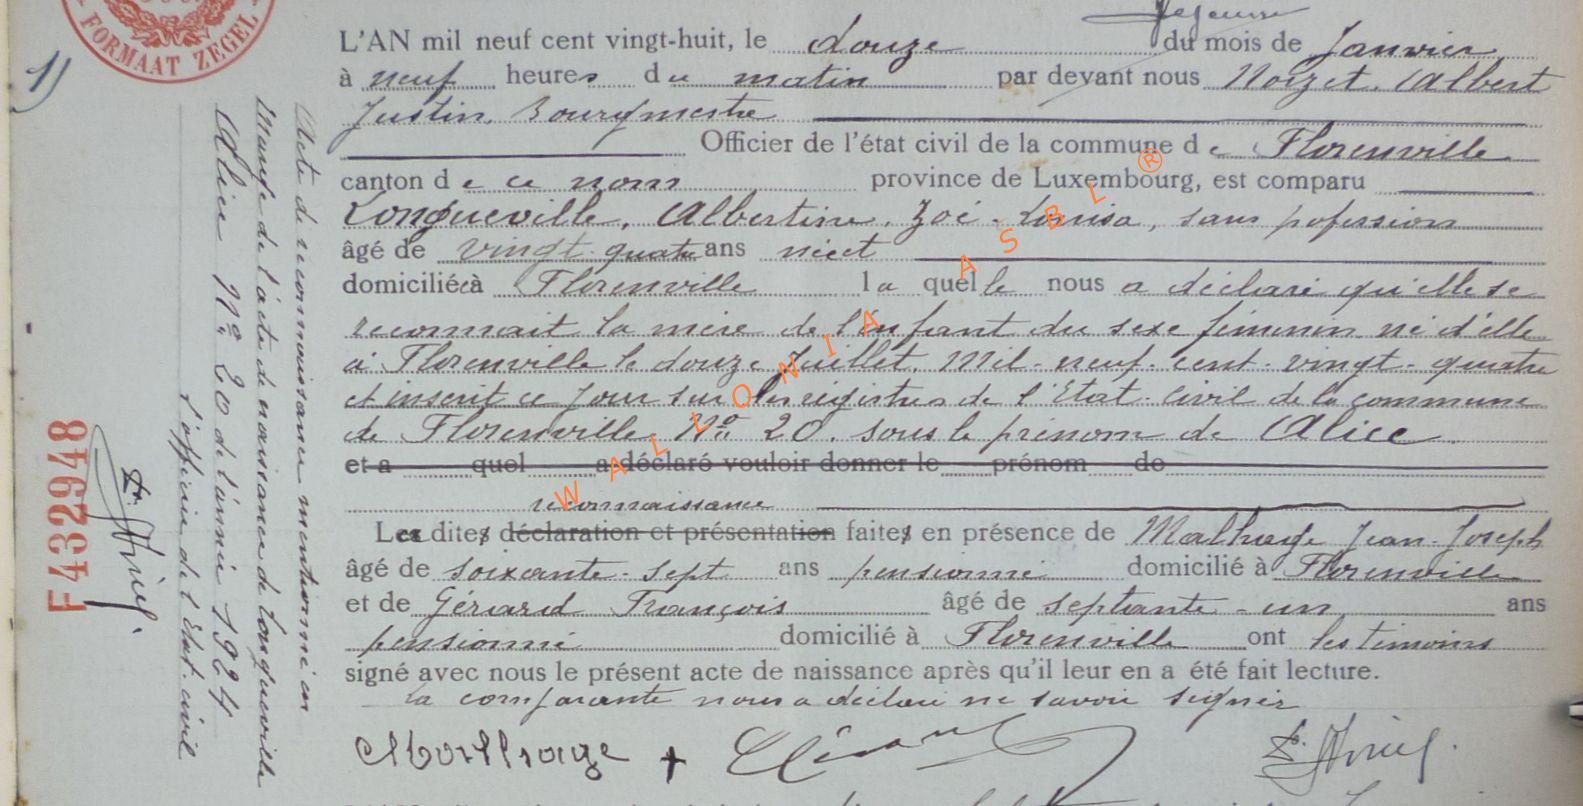 FORMAAT ZEGEL
1)
L'AN mil neuf cent vingt-huit, le douze du mois de Janvier
à neuf heures du matin par devant nous Noizet, Albert
Justin, Bourgmestre
Officier de l'état civil de la commune de Florenville
canton de ce nom province de Luxembourg, est comparu
Longueville, Albertine, Zoé, Louisa, sans pofession
âgé de vingt-quatre ans née et
domiciliée à Florenville laquelle nous a déclaré qu'elle se
reconnait la mère de l'enfant du sexe féminin né d'elle
à Florenville le douze Juillet, Mil-neuf-cent-vingt-quatre
et inscrit ce jour sur les registres de l'Etat-civil de la commune
de Florenville N° 20. sous le prénom de Alice
et a quel a déclaré vouloir donner le prénom de
reconnaissance
Les dites déclaration et présentation faites en présence de Jean-Joseph
âgé de soixante-sept ans pensionné domicilié à Florenville
et de Gérard François âgé de septante-un ans
pensionné domicilié à Florenville ont les témoins
signé avec nous le présent acte de naissance après qu'il leur en a été fait lecture.
la comparante nous a déclaré ne savoir signer
Acte de reconnaissance mentionné en
Marge de l'acte de naissance de Longueville
Alice N° 20 de l'année 1924
l'officier de l'Etat-civil
F432948
WALLONIA ASBL ®